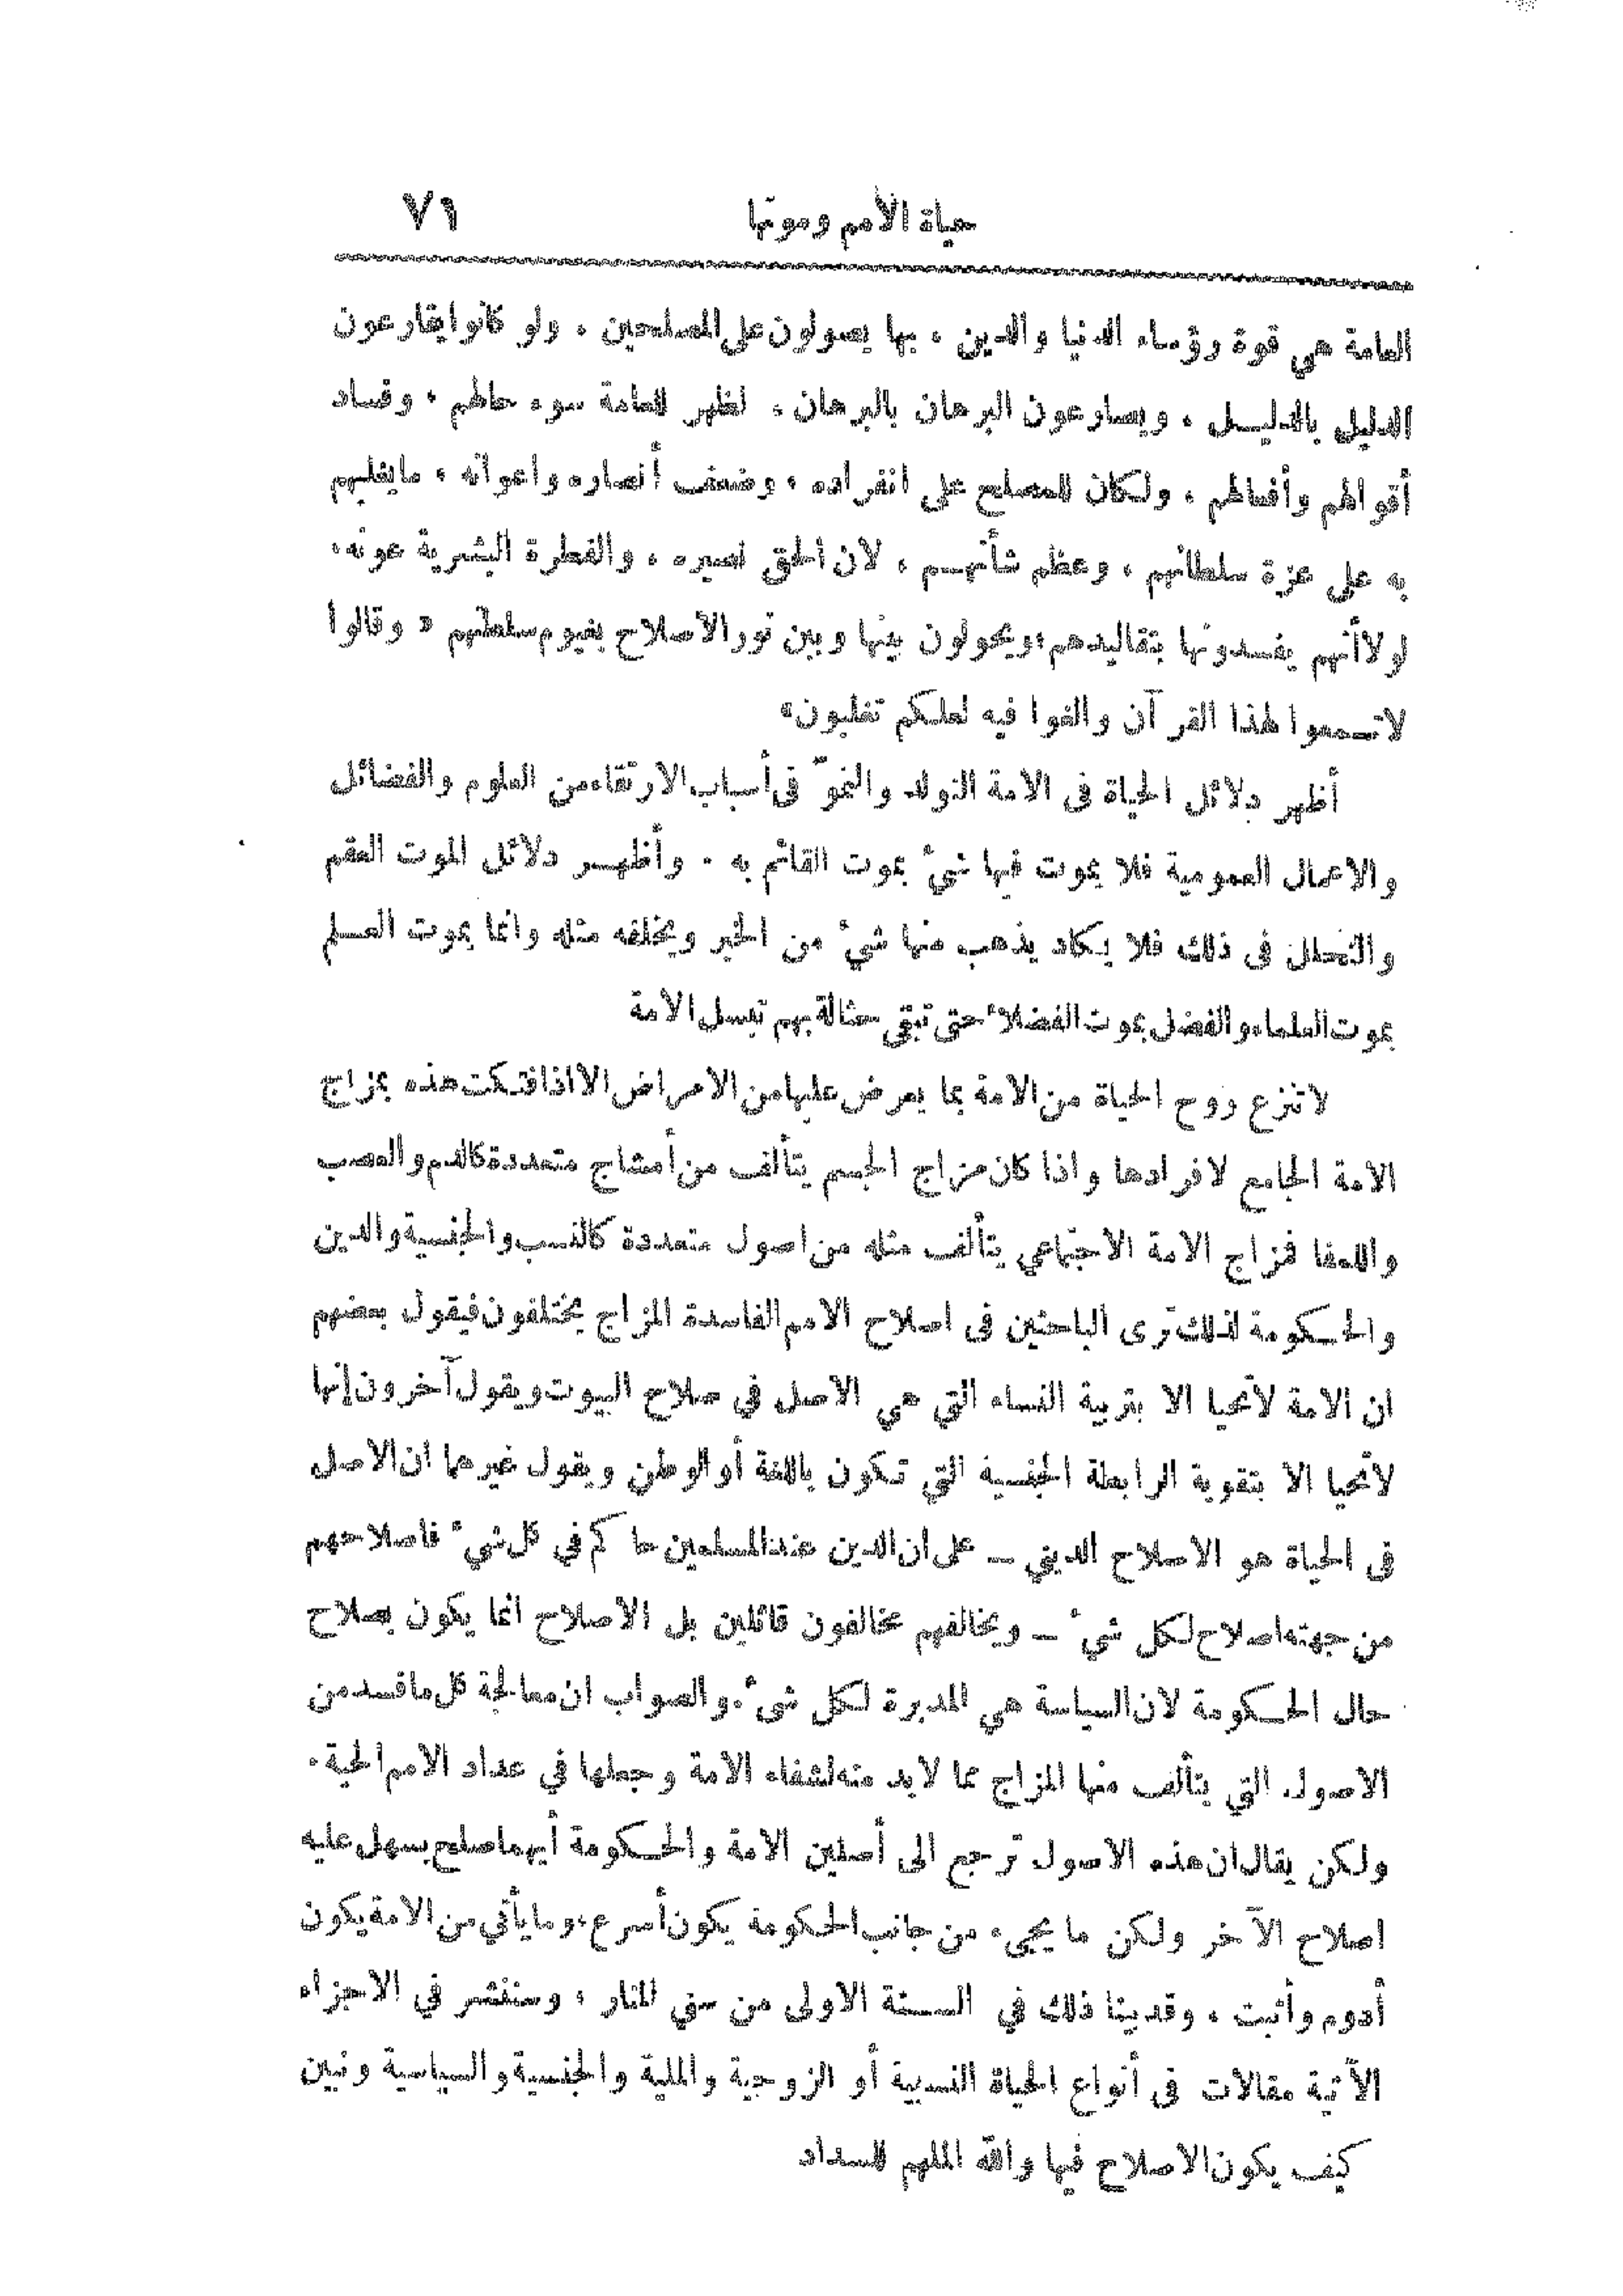 حياة الأمم وموتها ٧١
العامة هي قوة رؤساء الدنيا والدين ، بها يصولون على المصلحين ، ولو كانوا يقارعون
الدليل بالدليـل ، ويصارعون البرهان بالبرهان ، لظهر للعامة سوء حالهم ، وفساد
أقوالهم وأفعالهم ، ولكان للمصلح على انفراده ، وضعف أنصاره واعوانه ، مايغلبهم
به على عزة سلطانهم ، وعظم شأنهـم ، لان الحق نصيره ، والفطرة البشرية عونه ،
لولا أنهم يفسدونها بتقاليدهم ، ويحولون بينها وبين نور الاصلاح بغيوم سلطتهم « وقالوا
لاتسمعوا لهذا القرآن والغوا فيه لعلكم تغلبون »
أظهر دلائل الحياة فى الامة التولد والنموّ فى أسباب الارتقاء من العلوم والفضائل
والاعمال العمومية فلا يموت فيها شيء بموت القائم به . وأظهـر دلائل الموت العقم
والتحلل فى ذلك فلا يكاد يذهب منها شيء من الخير ويخلفه مثله وانما يموت العـلم
بموت العلماء والفضل بموت الفضلاء حتى تبقى حثالة بهم تبسل الامة
لا تنزع روح الحياة من الامة بما يعرض عليها من الامراض الا اذا فتكت هذه بمزاج
الامة الجامع لافرادها واذا كان مزاج الجسم يتألف من أمشاج متعددة كالدم والعصب
واللمفا فمزاج الامة الاجتماعي يتألف مثله من اصول متعددة كالنسب والجنسية والدين
والحـكومة لذلك ترى الباحثين فى اصلاح الامم الفاسدة المزاج يختلفون فيقول بعضهم
ان الامة لاتحيا الا بتربية النساء التي هي الاصل في صلاح البيوت ويقول آخرون إنها
لاتحيا الا بتقوية الرابطة الجنسية التي تكون باللغة أو الوطن ويقول غيرهما ان الاصل
فى الحياة هو الاصلاح الديني ــ على ان الدين عند المسلمين حاكم في كل شيء فاصلاحهم
من جهته اصلاح لكل شيء ــ ويخالفهم مخالفون قائلين بل الاصلاح انما يكون بصلاح
حال الحـكومة لان السياسة هي المدبرة لكل شىء . والصواب ان معالجة كل ما فسد من
الاصول التي يتألف منها المزاج مما لابد منه لشفاء الامة وجعلها في عداد الامم الحية .
ولكن يقال ان هذه الاصول ترجع الى أصلين الامة والحـكومة أيهما صلح يسهل عليه
اصلاح الآخر ولكن ما يجيء من جانب الحكومة يكون أسرع ، وما يأتي من الامة يكون
أدوم وأثبت ، وقد بينا ذلك في السـنة الاولى من سني المنار ، وسننشر في الاجزاء
الآتية مقالات فى أنواع الحياة النسبية أو الزوجية والملية والجنسية والسياسية ونبين
كيف يكون الاصلاح فيها والله الملهم للسداد